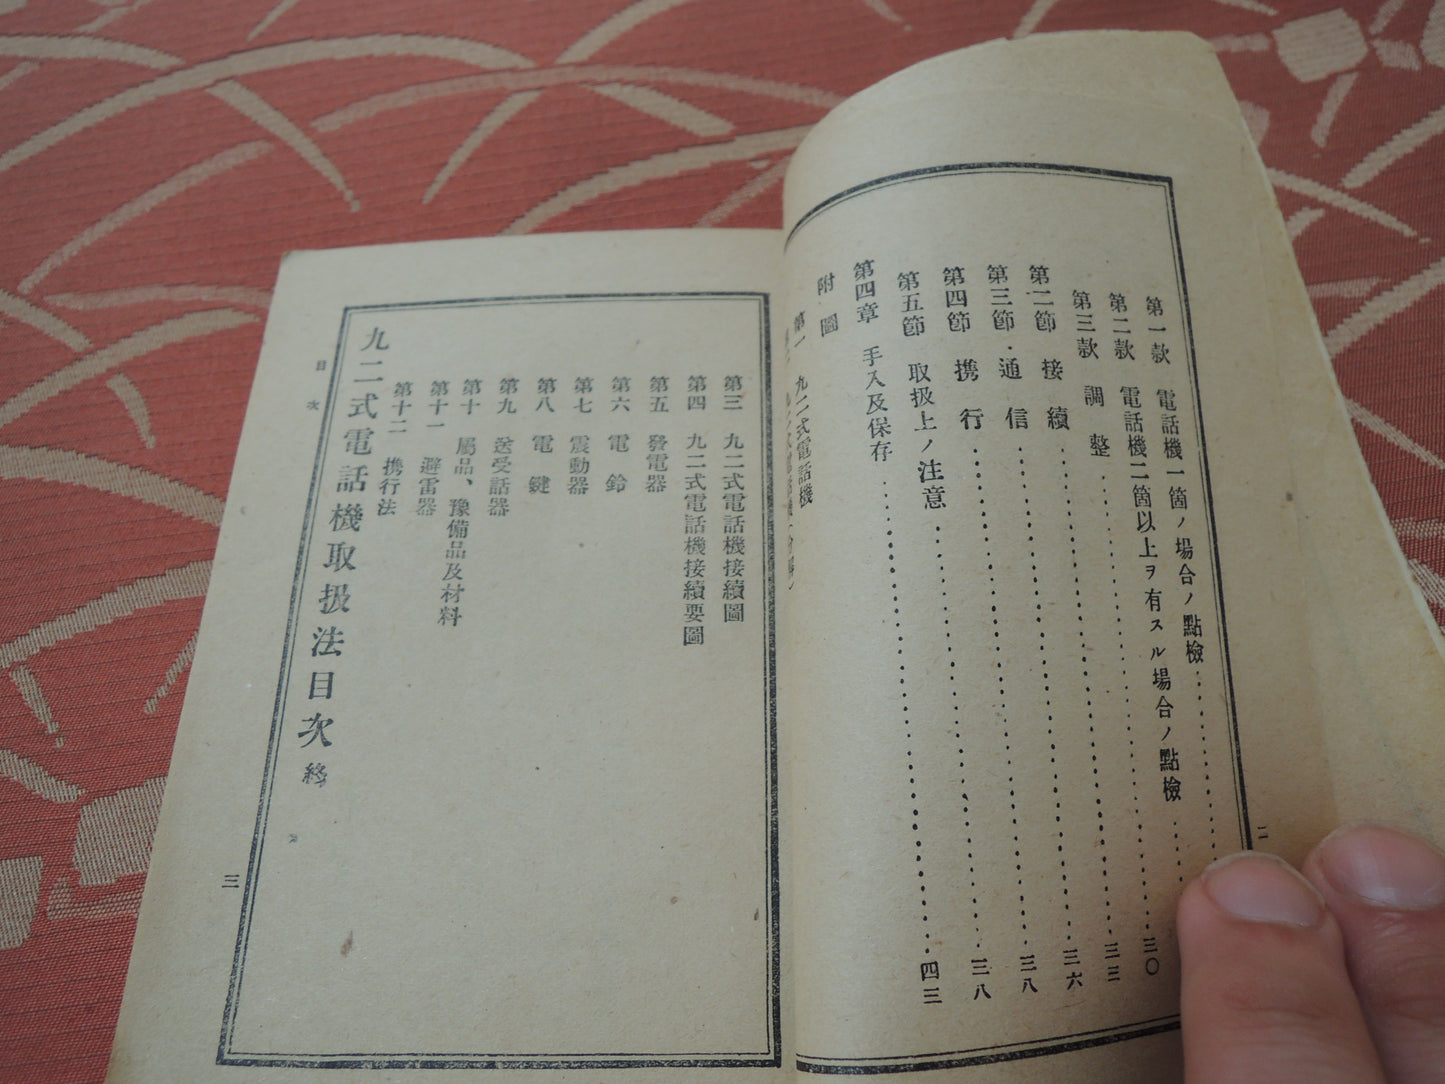 第一款 電話機一箇ノ場合ノ點檢
第二款 電話機二箇以上ヲ有スル場合ノ點檢 三〇
第三款 調整 三三
第二節 接續 三六
第三節 通信 三八
第四節 携行 三八
第五節 取扱上ノ注意 四三
第四章 手入及保存
附圖
第一 九二式電話機
二
第三 九二式電話機接續圖
第四 九二式電話機接續要圖
第五 發電器
第六 電鈴
第七 震動器
第八 電鍵
第九 送受話器
第十 屬品、豫備品及材料
第十一 避雷器
第十二 携行法
九二式電話機取扱法目次 終
目次
三